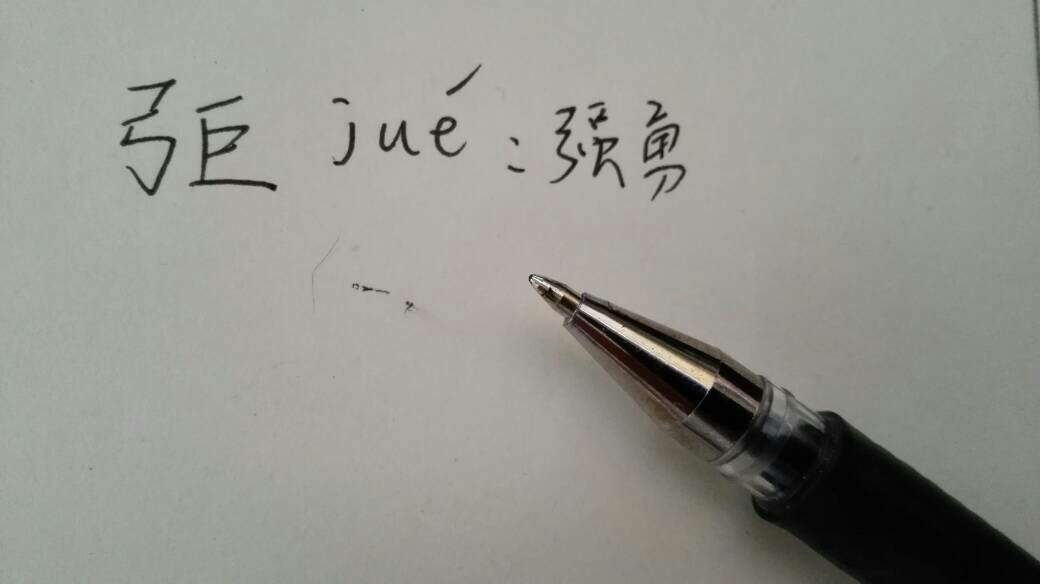 弡 jué：强勇